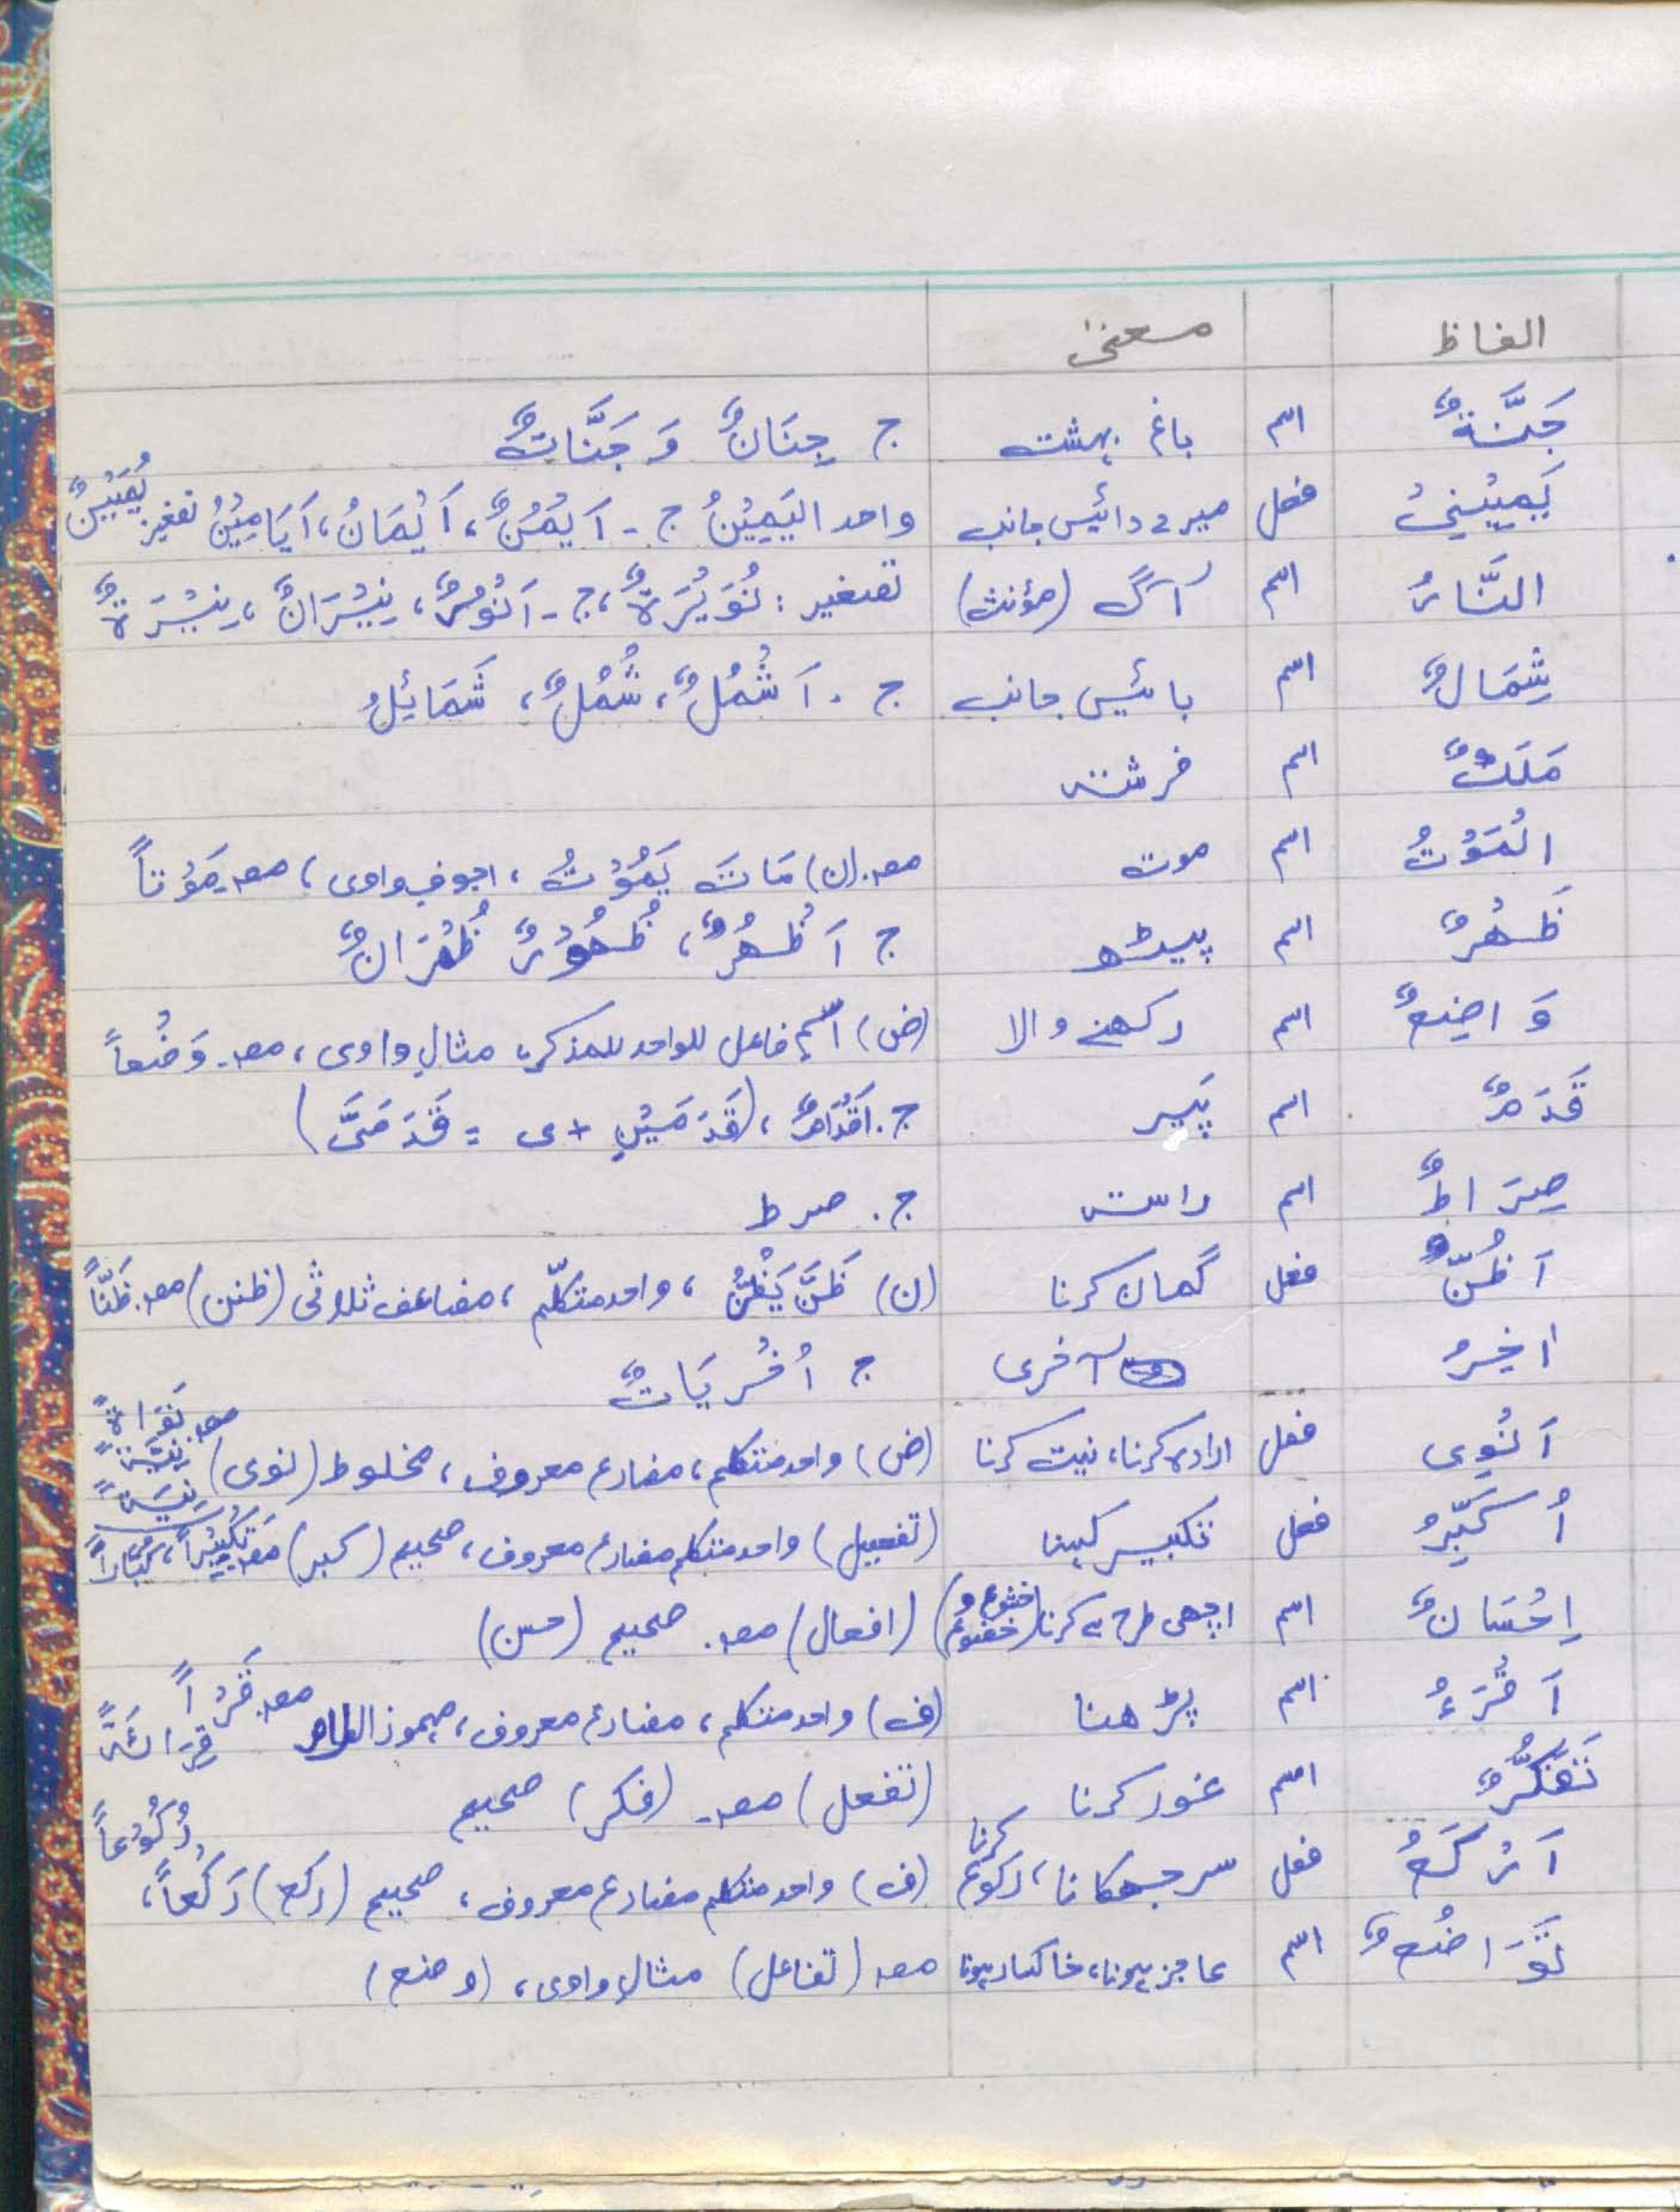 الفاظ معنیٰ
جَنَّةٌ اسم باغ بہشت ج جِنَانٌ وَ جَنَّاتٌ
يَمِيْنِيْ فعل میرے دائیں جانب واحد اليَمِيْنُ ج - اَيْمُنٌ، اَيْمَانُ، اَيَامِيْنُ تصغیر: يُمَيِّنٌ
النَّارُ اسم آگ (مؤنث) تصغیر: نُوَيْرَةٌ، ج - اَنْوُرٌ، نِيْرَانٌ، نِيْرَةٌ
شِمَالٌ اسم بائیں جانب ج - اَشْمُلٌ، شُمُلٌ، شَمَائِلُ
مَلَكٌ اسم فرشتہ
الْمَوْتُ اسم موت مصہ (ن) مَاتَ يَمُوْتُ، اجوف واوی، مصہ مَوْتاً
ظَهْرٌ اسم پیٹھ ج اَظْهُرٌ، ظُهُوْرٌ ظُهْرَانٌ
وَاضِعٌ اسم رکھنے والا (ض) اسم فاعل للواحد للمذکر، مثال واوی، مصہ وَضْعاً
قَدَمٌ اسم پَیر ج. اَقْدَامٌ، (قَدَمَيْنِ + ی = قَدَمَيَّ)
صِرَاطٌ اسم راستہ ج. صرط
اَظُنُّ فعل گمان کرنا (ن) ظَنَّ يَظُنُّ، واحد متکلّم، مضاعف ثلاثی (ظنن) مصہ ظَنّاً
اخیرُ آخری ج اُخْرَيَاتٌ
اَنْوِی فعل ارادہ کرنا، نیت کرنا (ض) واحد متکلم، مضارع معروف، مخلوط (نوی) مصہ نَوَاةً نِيَّةً نِيَةً
اُكَبِّرُ فعل تکبیر کہنا (تفعیل) واحد متکلم مضارع معروف، صحیح (کبر) مصہ تَكْبِيْراً، كِبَّاراً
اِحْسَانٌ اسم اچھی طرح سے کرنا (خشوع و خضوع) (افعال) مصہ. صحیح (حسن)
اَقْرَءُ اسم پڑھنا (ف) واحد متکلم، مضارع معروف، مہموز اللام مصہ قَرْاً قِرَائَةً
تَفَكُّرٌ اسم غور کرنا (تفعل) مصہ - (فکر) صحیح
اَرْكَعُ فعل سر جھکانا، رکوع کرنا (ف) واحد متکلم مضارع معروف، صحیح (رکع) رَكْعاً، رُكُوْعاً
تَوَاضُعٌ اسم عاجز ہونا، خاکسار ہونا مصہ (تفاعل) مثال واوی، (وضع)